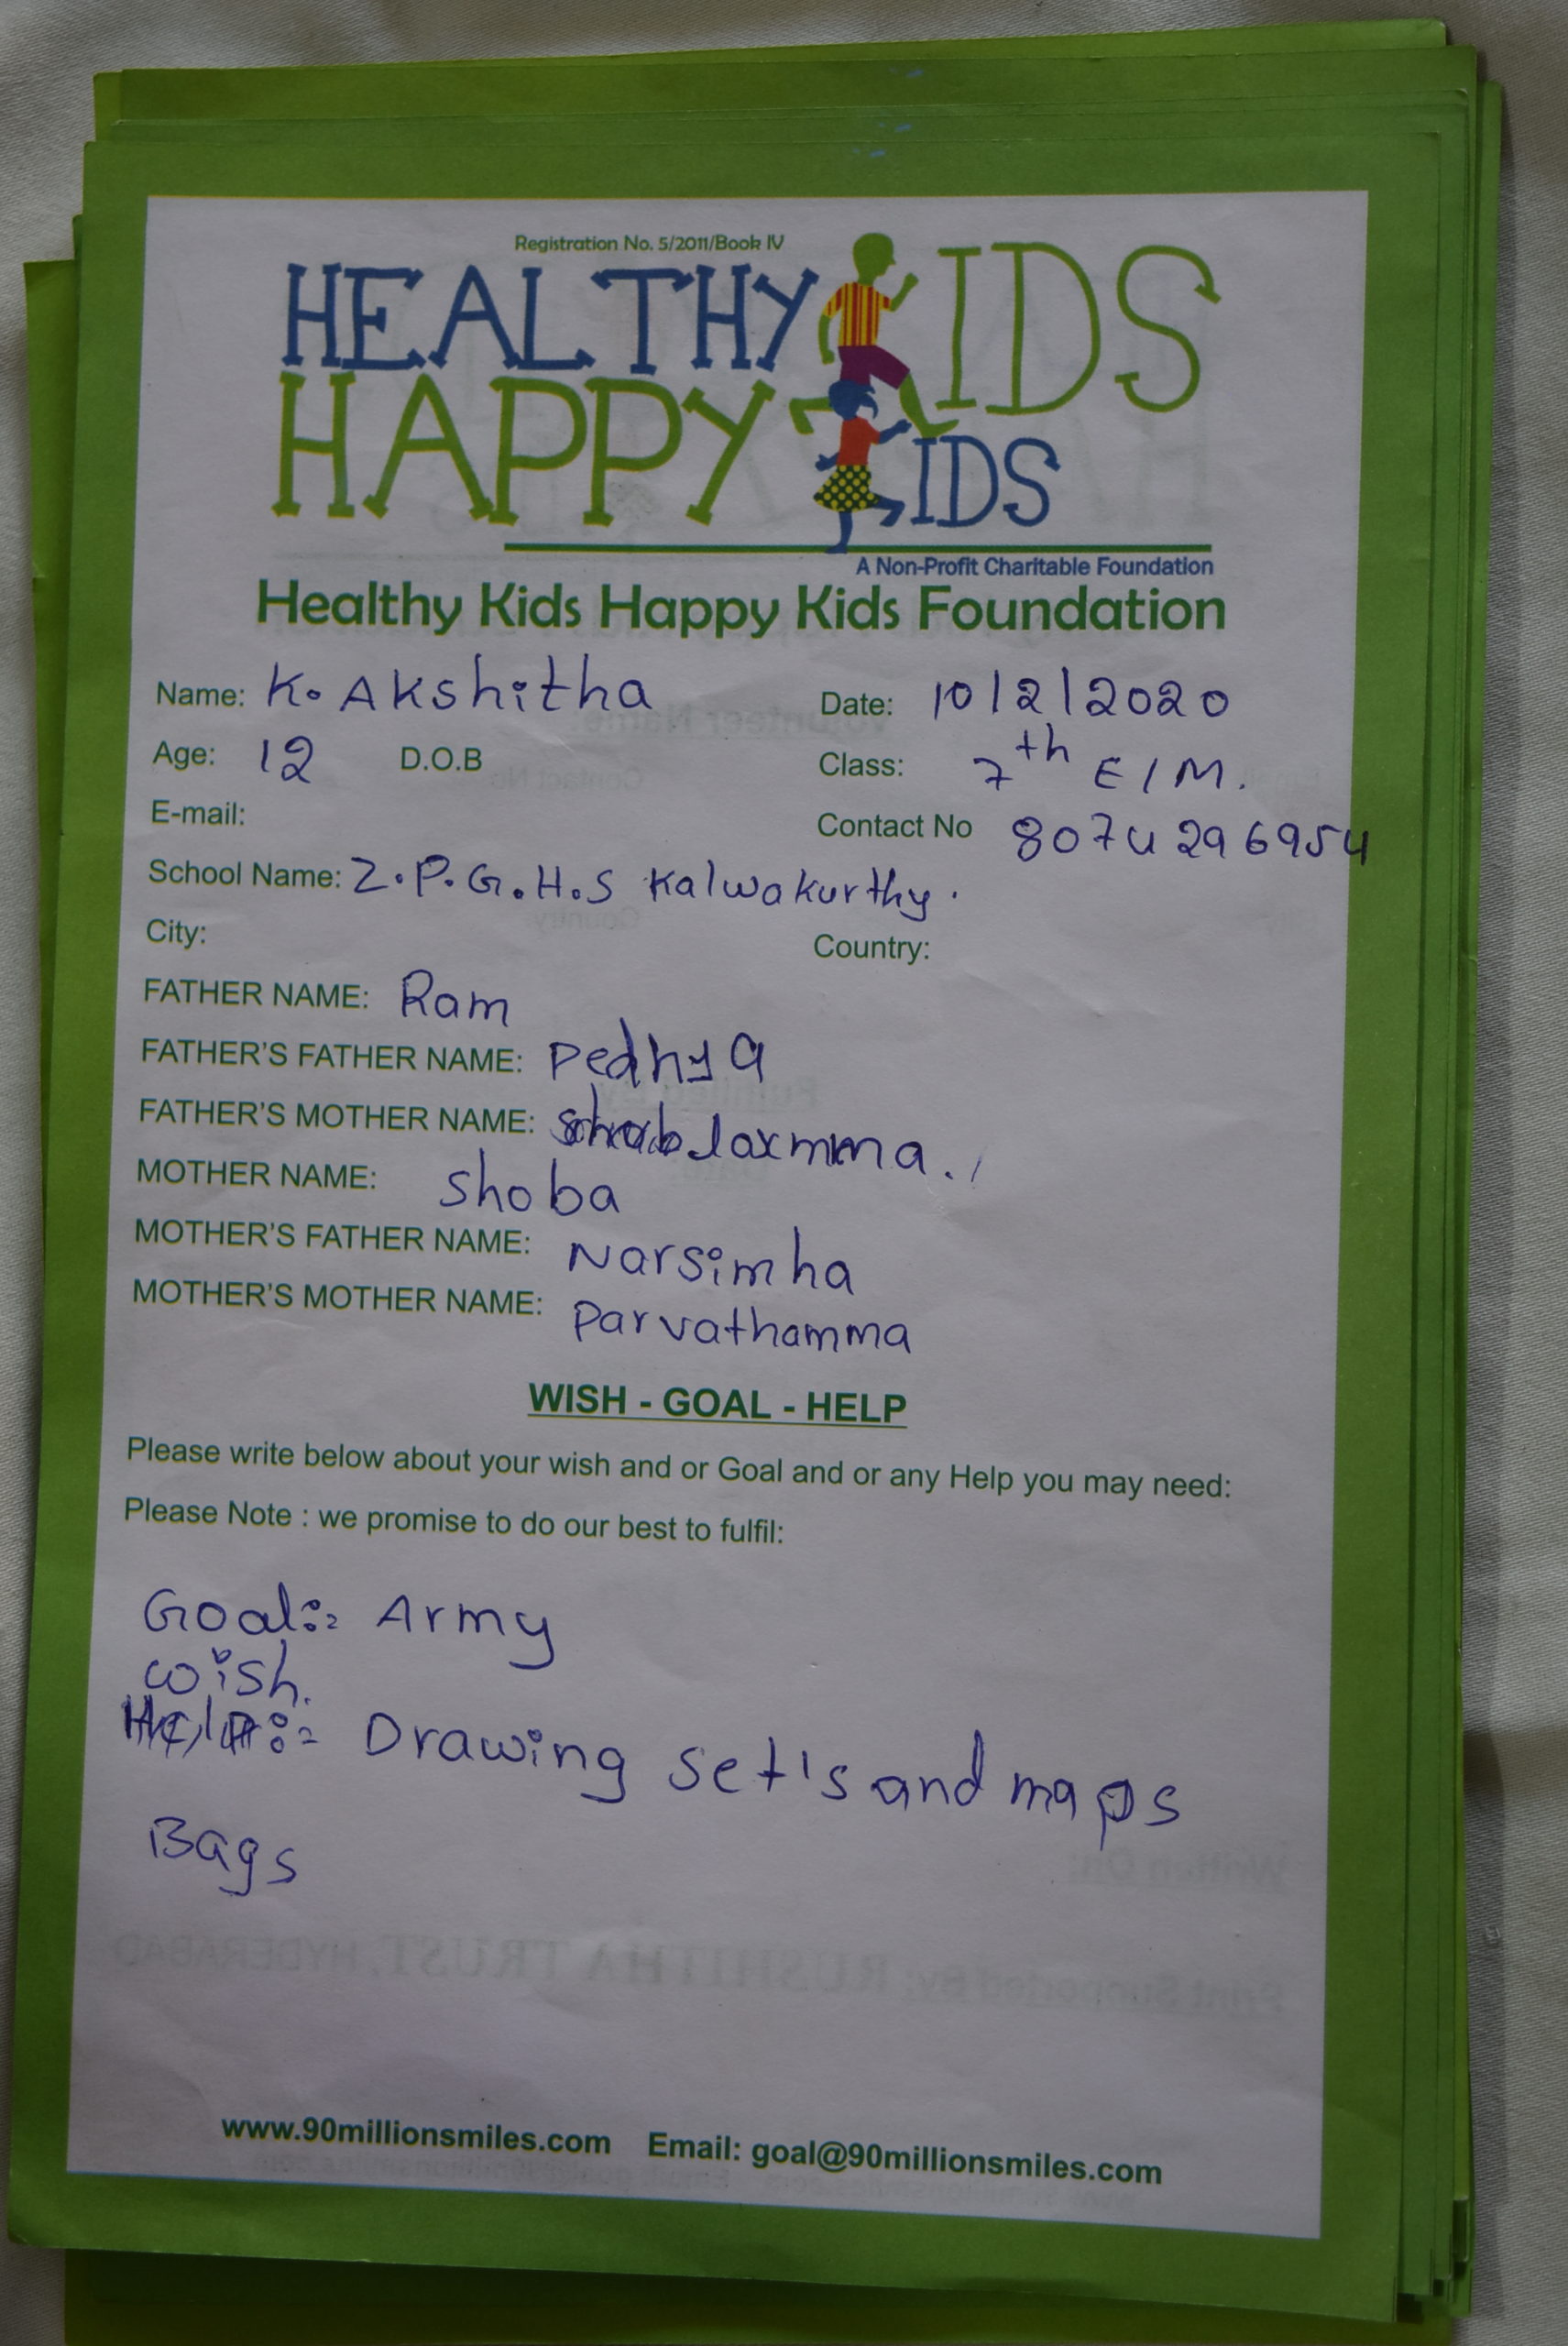 Registration No. 5/2011/Book IV
HEALTHY KIDS
HAPPY KIDS
A Non-Profit Charitable Foundation
Healthy Kids Happy Kids Foundation
Name: K. Akshitha Date: 10/2/2020
Age: 12 D.O.B Class: 7th E/M.
E-mail: Contact No 8074296954
School Name: Z.P.G.H.S Kalwakurthy.
City: Country:
FATHER NAME: Ram
FATHER'S FATHER NAME:
FATHER'S MOTHER NAME: laxmma.
MOTHER NAME: Shoba
MOTHER'S FATHER NAME: Narsimha
MOTHER'S MOTHER NAME: Parvathamma
WISH - GOAL - HELP
Please write below about your wish and or Goal and or any Help you may need:
Please Note : we promise to do our best to fulfil:
Goal:= Army
wish.
Help:= Drawing set's and maps
Bags
www.90millionsmiles.com Email: goal@90millionsmiles.com